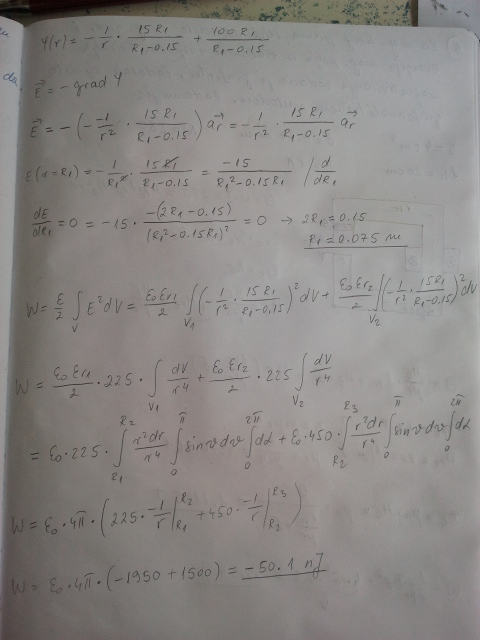 φ(r) = - 1/r · 15 R₁/(R₁-0.15) + 100 R₁/(R₁-0.15)
E⃗ = - grad φ
E⃗ = -(- -1/r² · 15 R₁/(R₁-0.15)) a⃗r = - 1/r² · 15 R₁/(R₁-0.15) a⃗r
E(r=R₁) = - 1/R₁² · 15 R₁/(R₁-0.15) = -15/(R₁²-0.15R₁) / d/dR₁
dE/dR₁ = 0 = -15 · -(2R₁-0.15)/(R₁²-0.15R₁)² = 0 → 2R₁=0.15
R₁=0.075 m
W = ε/2 ∫V E² dV = ε₀εr₁/2 ∫V₁ (- 1/r² · 15 R₁/(R₁-0.15))² dV + ε₀εr₂/2 ∫V₂ (- 1/r² · 15 R₁/(R₁-0.15))² dV
W = ε₀εr₁/2 · 225 · ∫V₁ dV/r⁴ + ε₀εr₂/2 · 225 ∫V₂ dV/r⁴
= ε₀ · 225 · ∫R₁^R₂ r²dr/r⁴ ∫0^π sinϑdϑ ∫0^2π dα + ε₀ · 450 · ∫R₂^R₃ r²dr/r⁴ ∫0^π sinϑdϑ ∫0^2π dα
W = ε₀ · 4π · (225 · -1/r |R₁^R₂ + 450 · -1/r |R₂^R₃)
W = ε₀ · 4π · (-1950 + 1500) = -50.1 nJ